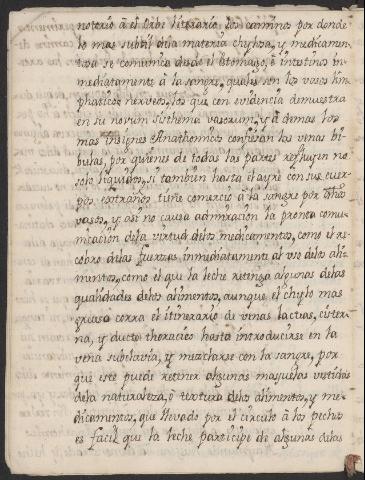 notorio â el Orbe literario los caminos por donde
lo mas subtil dela materia chylosa, y medicamen-
tosa se comunica desde el Estomago, ô intestinos in-
mediatamente â la sangre, quales son los vasos lim-
phaticos nerveos, los que con evidencia demuestra
en su novum systhema vasorum, y â demas los
mas insignes Anathomicos confiesan las venas bi-
bulas, por quienes de todas las partes refluyen no
solo liquidos, si tambien hasta el ayre con sus cuer-
pos extraños tiene comercio â la sangre por dhos
vasos, y asi no causa admiracion la pronta comu-
nicacion dela virtud delos medicamentos, como el re-
cobro delas fuerzas inmediatamente al uso delos ali-
mentos, como el que la leche retenga algunas delas
qualidades delos alimentos, aunque el chylo mas
grueso corra el itinerario de venas lacteas, cister-
na, y ducto thoracico hasta introducirse en la
vena subclavia, y mezclarse con la sangre, por
que este puede retener algunas masuelas vestidas
dela naturaleza, ô textura delos alimentos, y me-
dicamentos, que llevado por el circulo â los pechos
es facil que la leche participe de algunas delas